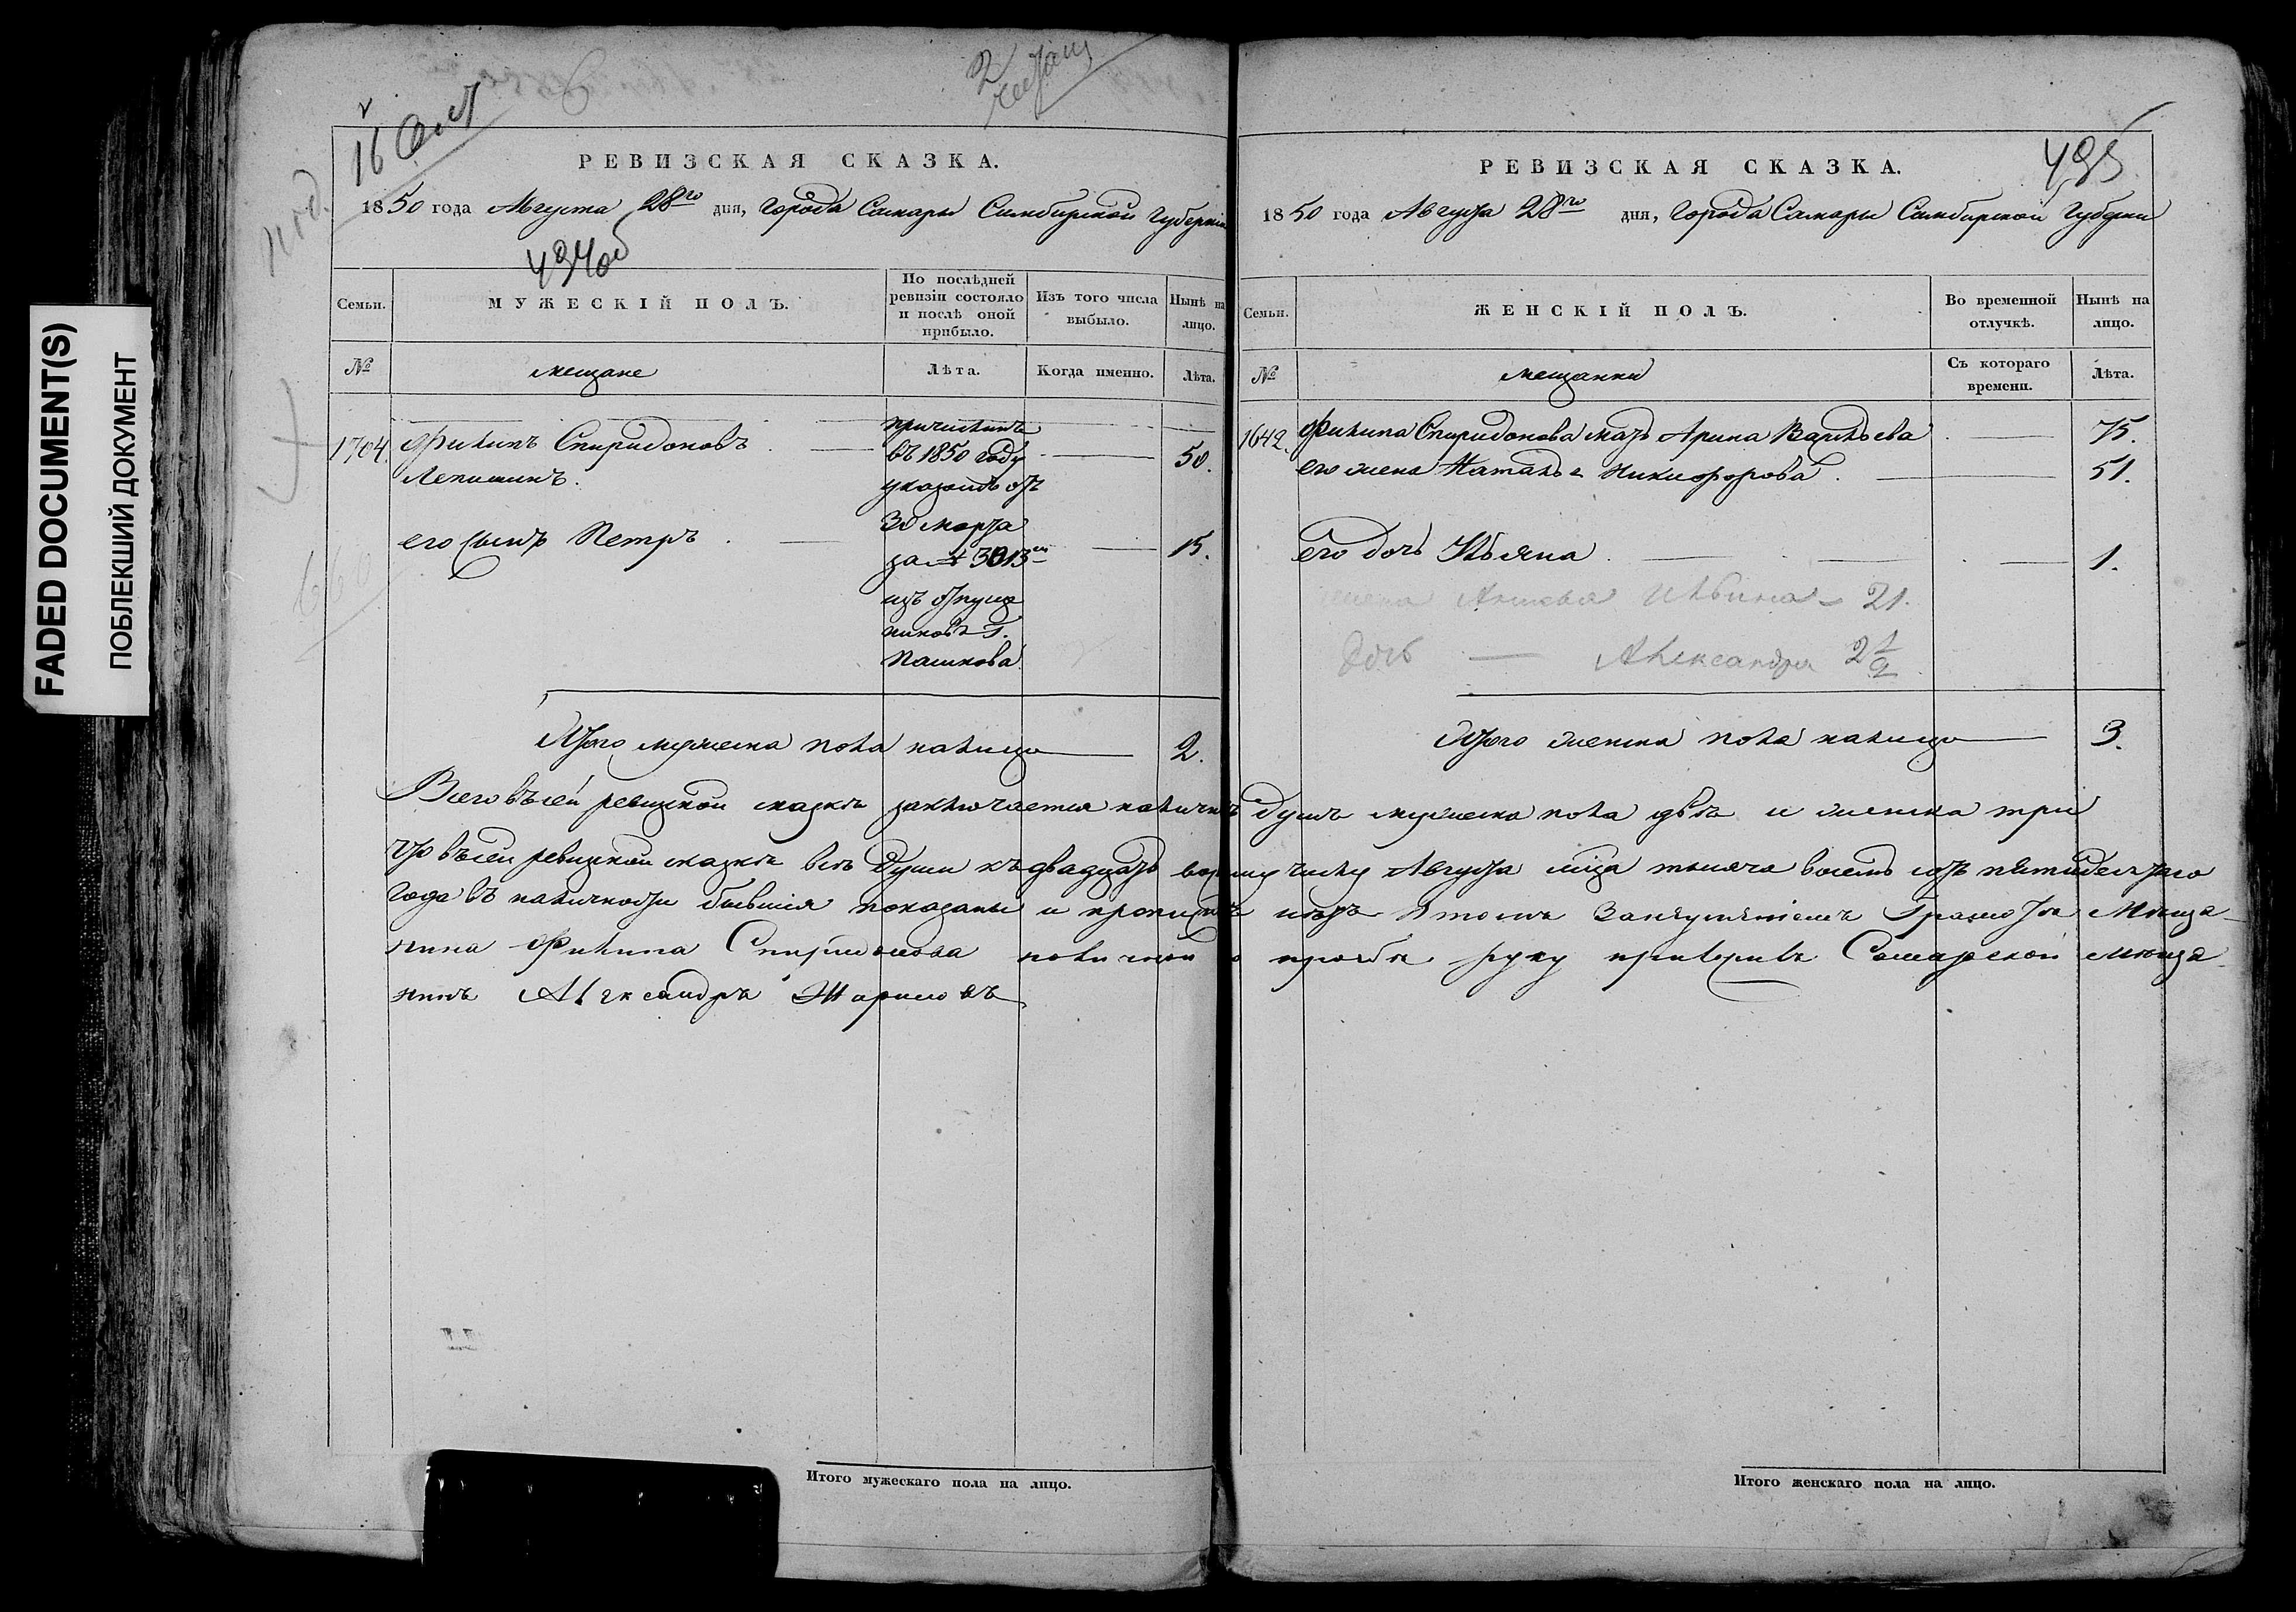 FADED DOCUMENT(S)
ПОБЛЕКШИЙ ДОКУМЕНТ
16
РЕВИЗСКАЯ СКАЗКА.
1850 года Августа 28го дня, Города Самары Симбирской Губернии
494об
Семьи.
МУЖЕСКІЙ ПОЛЪ.
По послѣдней ревизіи состояло и послѣ оной прибыло.
Изъ того числа выбыло.
Нынѣ на лицо.
№
мещане
Лѣта.
Когда именно.
Лѣта.
1704. Филипъ Спиридоновъ
50.
причисленъ
въ 1850 году
указомъ отъ
30 марта
за № 3013м
изъ отпуще
никовъ Г.
Пашкова
его сынъ Петръ
15.
Итого мужеска пола налицо 2.
Итого мужескаго пола на лицо.
495
РЕВИЗСКАЯ СКАЗКА.
1850 года Августа 28го дня, Города Самары Симбирской Губернии
Семьи.
ЖЕНСКІЙ ПОЛЪ.
Во временной отлучкѣ.
Нынѣ на лицо.
№
мещанки
Съ котораго времени.
Лѣта.
1642. Филипа Спиридонова мать Арина Васильева 75.
его жена Наталья Никифорова 51.
его дочь Ульяна 1.
жена Ильина 21.
дочь Александра 2 1/2
Итого женска пола налицо 3.
Всего въ сей ревизкой сказкѣ заключается наличныхъ душъ мужеска пола двѣ и женска три
что въ сей ревизкой сказкѣ всѣ души къ двадцать восьмому числу Августа мца тысяча восемь сотъ пятидесятаго
года въ наличности бывшия показаны и пропущенныхъ нѣтъ в томъ Занеумѣніемъ Грамотѣ Мѣща
нина Филипа Спиридонова по личной о прозбѣ руку приложилъ Самарской мѣща
нинъ Александръ
Итого женскаго пола на лицо.